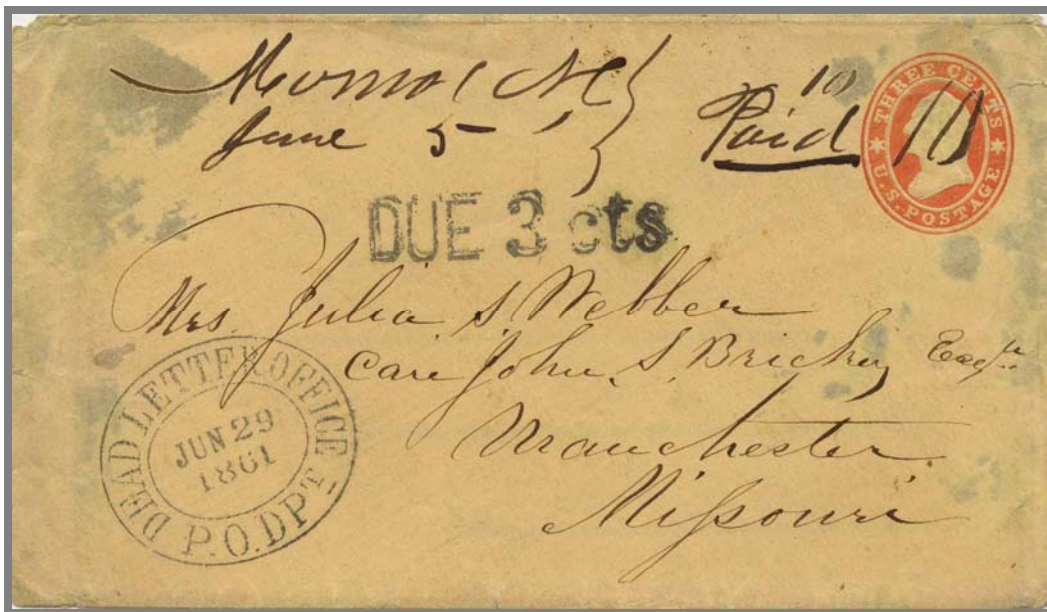 June 5
10
Paid 10
THREE CENTS
U.S. POSTAGE
DUE 3 cts
Mrs. Julia S Webber
Care John S. Brickey Esqr.
Manchester
Missouri
DEAD LETTER OFFICE
JUN 29
1861
P.O.DPT.